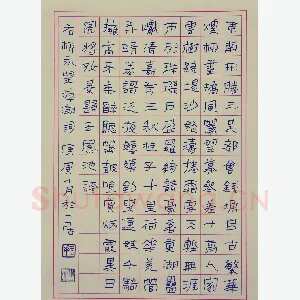 東南形勝三吳都會錢塘自古繁華
煙柳畫橋風簾翠幕參差十萬人家
雲樹繞堤沙怒濤卷霜雪天塹無涯
市列珠璣戶盈羅綺競豪奢重湖疊
巘清嘉有三秋桂子十里荷花羌管
弄晴菱歌泛夜嬉嬉釣叟蓮娃千騎
擁高牙乘醉聽簫鼓吟賞煙霞異日
圖將好景歸去鳳池誇
右柳永望海潮詞寅月於居